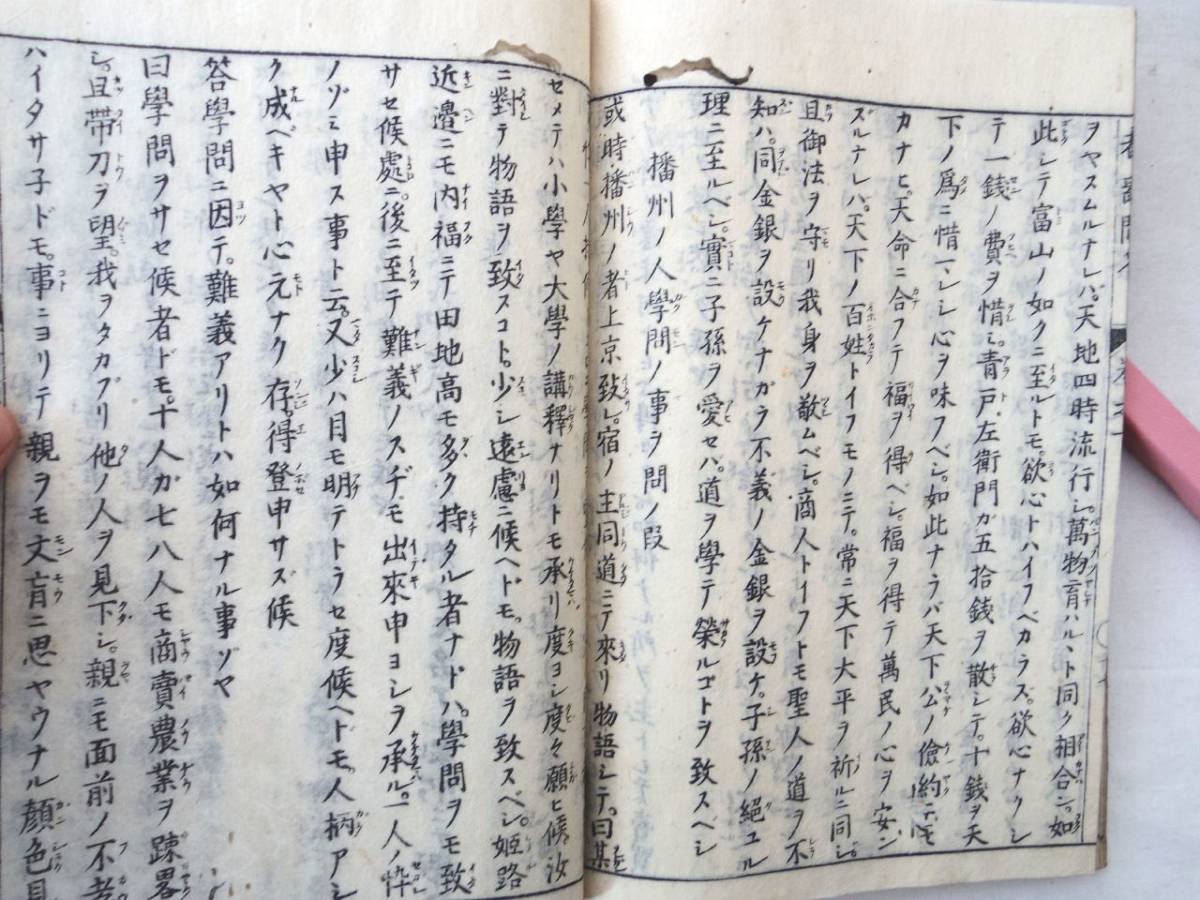 ヲヤスムルナレバ。天地四時流行シ。萬物育ハル丶ト同ク相合ン。如
此シテ富山ノ如クニ至ルトモ。欲心トハイフベカラス。欲心ナクシ
テ一錢ノ費ヲ惜ミ。青戸左衛門ガ五拾錢ヲ散シテ。十錢ヲ天
下ノ爲ニ惜マレシ心ヲ味フベシ。如此ナラバ天下公ノ儉約ニモ
カナヒ。天命ニ合フテ福ヲ得ベシ。福ヲ得テ萬民ノ心ヲ安ン
ズルナレハ。天下ノ百姓トイフモノニテ。常ニ天下大平ヲ祈ルニ同シ。
且御法ヲ守リ我身ヲ敬ムベシ。商人トイフトモ聖人ノ道ヲ不
知ハ。同金銀ヲ設ケナガラ不義ノ金銀ヲ設ケ。子孫ノ絕ユル
理ニ至ルベシ。實ニ子孫ヲ愛セバ。道ヲ學テ榮ルコトヲ致スベシ
播州ノ人學問ノ事ヲ問ノ段
或時播州ノ者上京致シ。宿ノ主同道ニテ來リ物語シテ。曰某
セメテハ小學ヤ大學ノ講釋ナリトモ承リ度ヨシ度々願ヒ候。汝
ニ對テ物語ヲ致スコト。少シ遠慮ニ候ヘドモ。物語ヲ致スベシ。姬路
近邉ニモ內福ニテ田地高モ多ク持タル者ナドハ。學問ヲモ致
サセ候處ニ。後ニ至テ難義ノスヂモ出來申ヨシヲ承ル。一人ノ忰
ノゾミ申ス事ト云。又少ハ目モ明テトラセ度候ヘドモ。人柄アシ
ク成ベキヤト心元ナク存。得登申サズ候
答學問ニ因テ。難義アリトハ如何ナル事ゾヤ
曰學問ヲサセ候者ドモ。十人ガ七八人モ商賣農業ヲ疎畧
シ。且帶刀ヲ望。我ヲタカブリ他ノ人ヲ見下シ。親ニモ面前ノ不孝
ハイタサ子ドモ。事ニヨリテ親ヲモ文盲ニ思ヤウナル顏色見